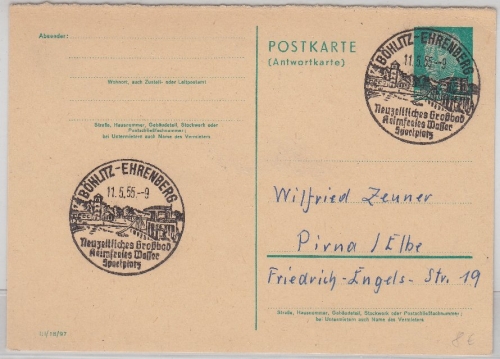 Absender:
Wohnort, auch Zustell- oder Leitpostamt
Straße, Hausnummer, Gebäudeteil, Stockwerk oder Postschließfachnummer;
bei Untermietern auch Name des Vermieters
BÖHLITZ-EHRENBERG
11.5.55.-9
Neuzeitliches Großbad
Keimfreies Wasser
Sportplatz
POSTKARTE
(Antwortkarte)
BÖHLITZ-EHRENBERG
11.5.55.-9
Neuzeitliches Großbad
Keimfreies Wasser
Sportplatz
Wilfried Zeuner
Pirna / Elbe
Friedrich-Engels-Str. 19
Straße, Hausnummer, Gebäudeteil, Stockwerk oder Postschließfachnummer;
bei Untermietern auch Name des Vermieters
8 €